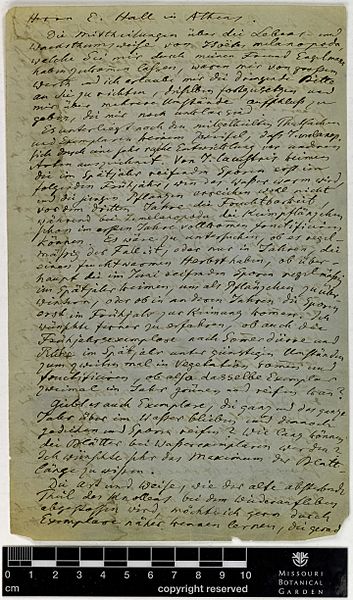 Herrn E. Hall in Athens.
Die Mittheilungen über die Lebens- und
Wachsthumsweise von Isoëtes melanopoda
welche Sie mir durch meinen Freund Engelmann
haben zukommen lassen, waren mir von großem
Werth und ich erlaube mir die dringende Bitte
an Sie zu richten, dieselben fortzusetzen und
mir über mehrere Umstände Aufschluß zu
geben, die mir noch unklar sind.
Es unterliegt nach den mitgetheilten Thatsachen
und Exemplaren keinem Zweifel, daß I. melanop.
sich durch eine sehr rasche Entwicklung vor anderen
Arten auszeichnet. Von I. lacustris keimen
die im Spätjahr reifenden Sporen erst im
folgenden Frühjahr, wenn das Wasser warm wird,
und die jungen Pflanzen erreichen wohl nicht
vor dem dritten Jahre die Fruchtbarkeit
während bei I. melanopoda die Keimpflänzchen
schon im ersten Jahre vollkommen fructificiren
können. Es wäre zu untersuchen, ob es regel-
mäßig der Fall ist, oder nur in Jahren, die
einen feuchtwarmen Herbst haben, ob über-
haupt die im Juni reifenden Sporen regelmäßig
im Spätjahr keimen, um als Pflänzchen zu über-
wintern, oder ob in anderen Jahren die Sporen
erst im Frühjahr zur Keimung kommen. Ich
wünschte ferner zu erfahren, ob auch die
Frühjahrsexemplare nach Sommerdürre und
Ruhe im Spätjahr unter günstigen Umständen
zum zweiten mal in Vegetation kommen und
fructificiren, ob also dasselbe Exemplar
zweimal im Jahr grünen und reifen kann?
Giebt es auch Exemplare, die ganz und das ganze
Jahr über im Wasser bleiben und dennoch
gedeihen und Sporen reifen? Wie lang können
die Blätter bei Wasserexemplaren werden?
Ich wünschte sehr das Maximum der Blatt-
länge zu wissen.
Die Art und Weise, wie der alte absterbende
Theil des Knollens bei dem Wiederaufleben
abgestoßen wird, möchte ich gern durch
Exemplare näher kennen lernen, die grad
0 1 2 3 4 5 6 7 8 9 10
cm
copyright reserved
MISSOURI
BOTANICAL
GARDEN